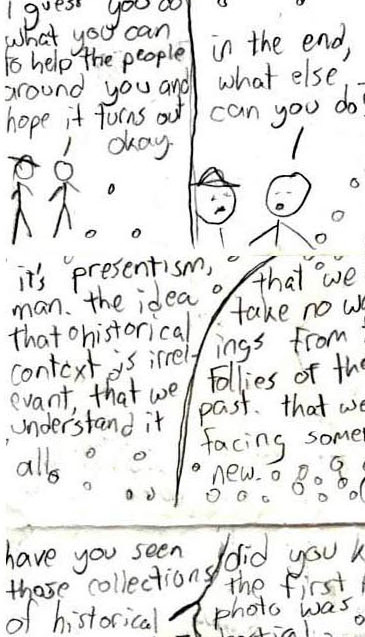 I guess you do
what you can
to help the people
around you and
hope it turns out
okay.
in the end,
what else
can you do
it's "presentism,"
man. the idea
that historical
context is irrel-
evant, that we
understand it
all.
that we
take no
ings from
follies of the
past. that we
facing
new.
have you seen
those collections
of historical
did you k
the first
photo was